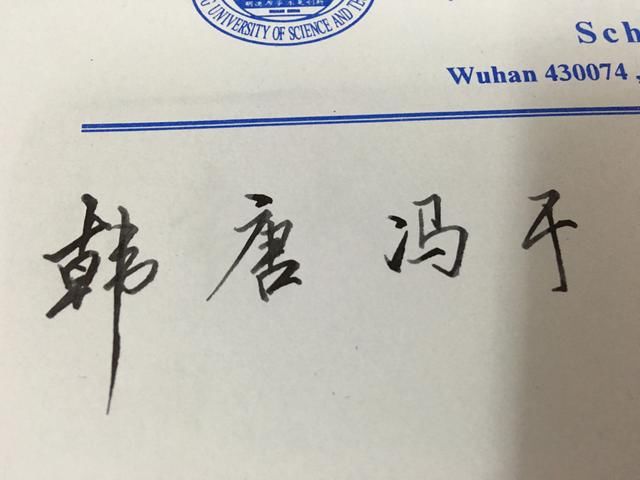 明德厚学求是创新
G UNIVERSITY OF SCIENCE AND TE
Sch
Wuhan 430074 ,
韩 唐 冯 于